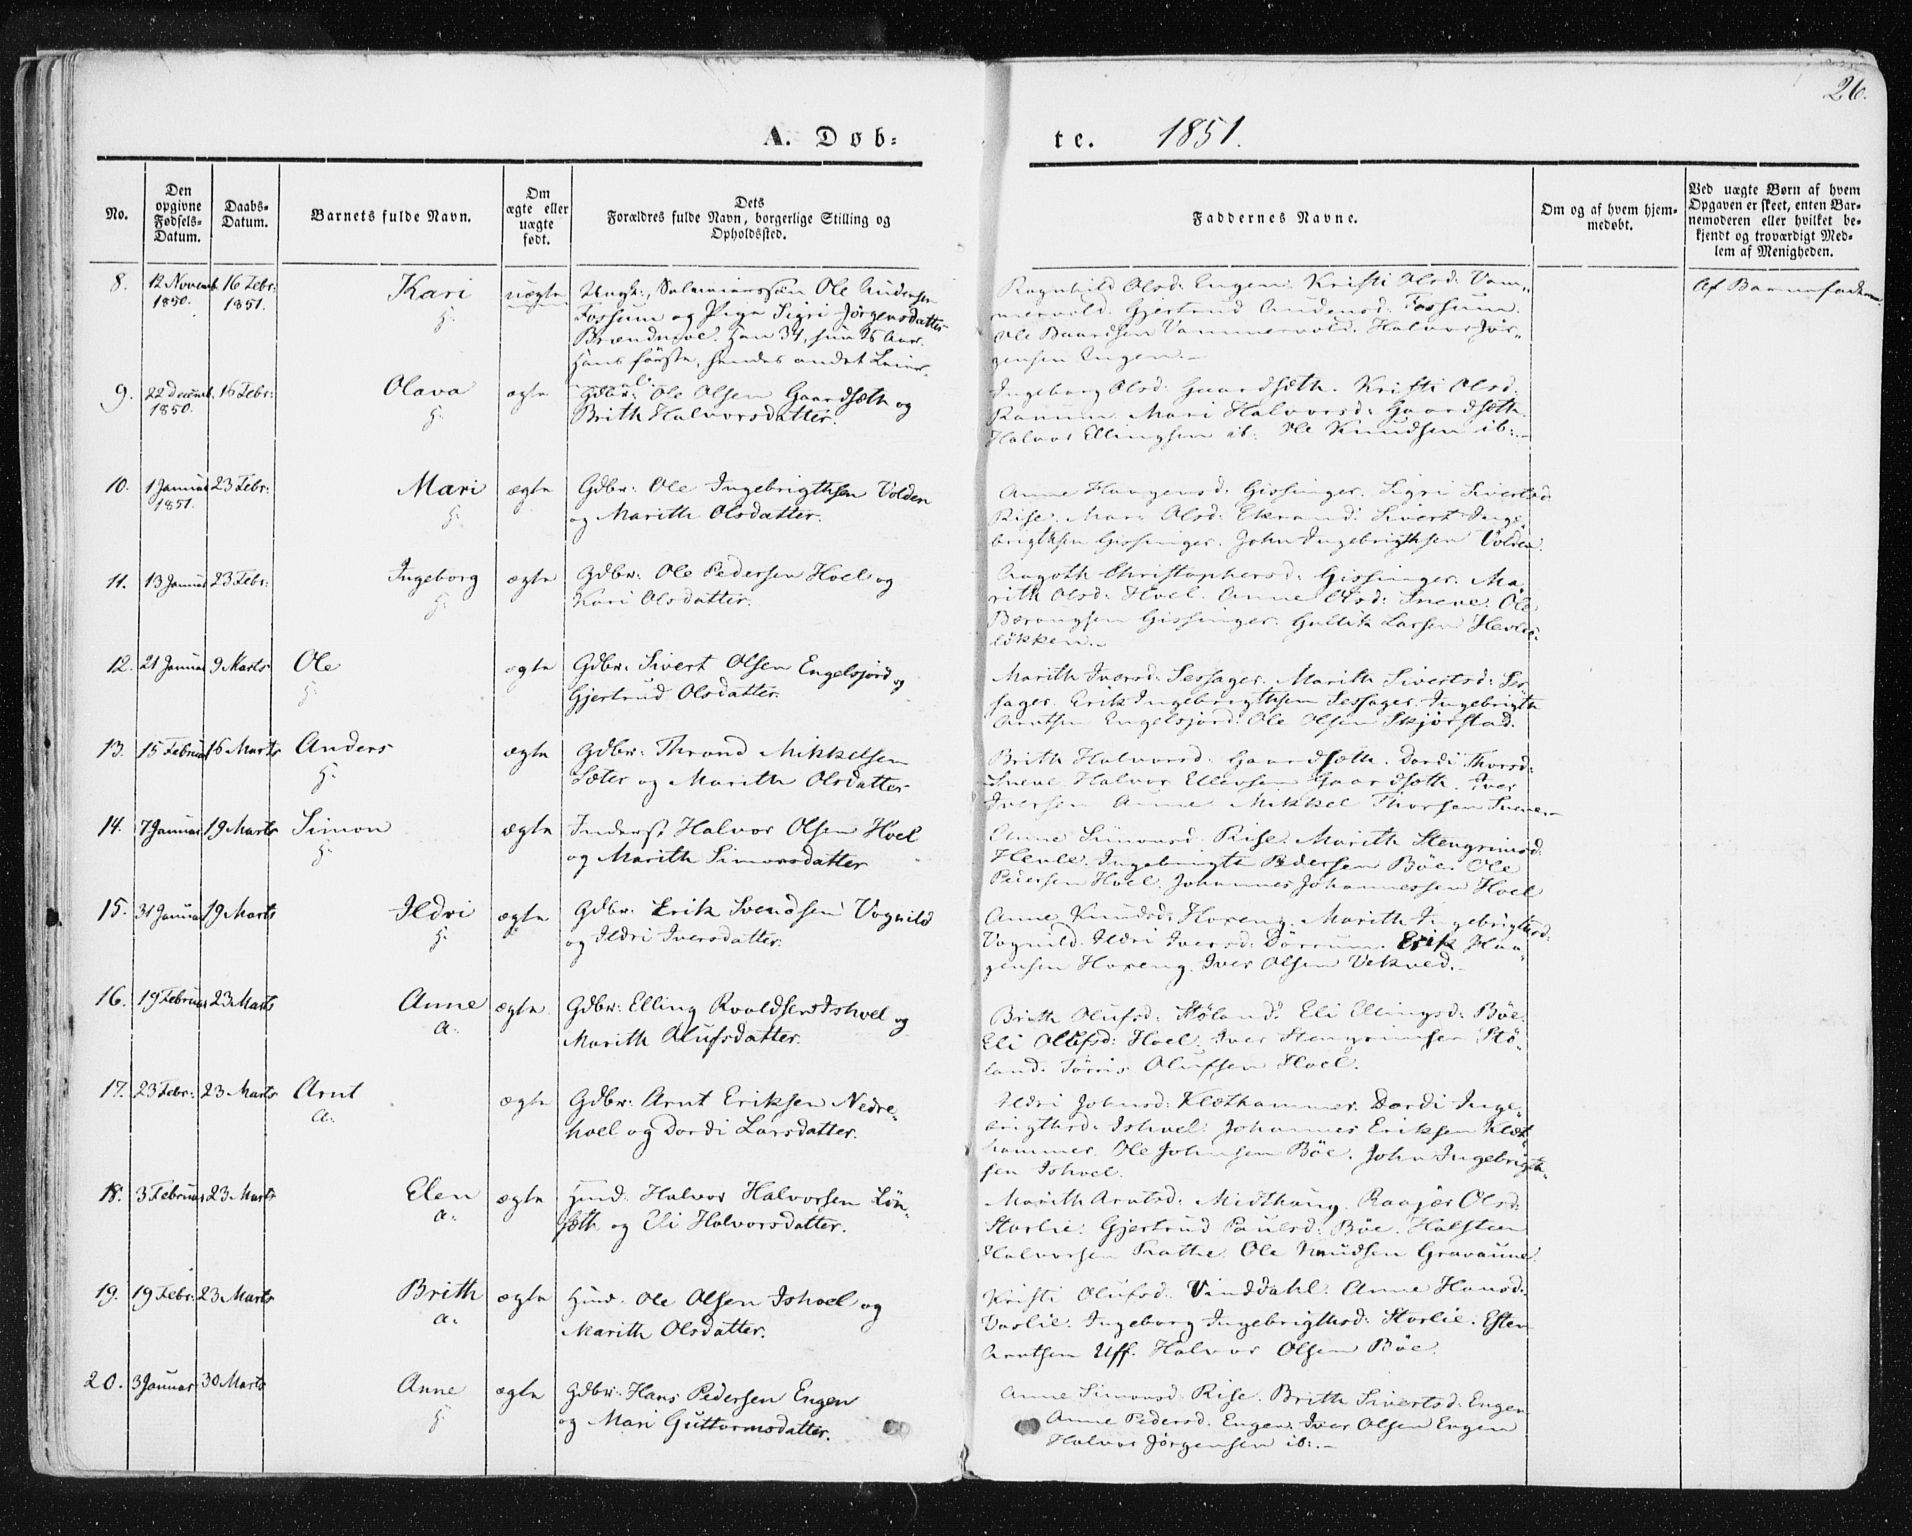 26.
A. Døb-
te. 1851.
No.
Den opgivne Fødsels-Datum.
Daabs-Datum.
Barnets fulde Navn.
Om ægte eller uægte født.
Dets Forældres fulde Navn, borgerlige Stilling og Opholdssted.
Faddernes Navne.
Om og af hvem hjem-medøbt.
Ved uægte Børn af hvem Opgaven er skeet, enten Bar-nemoderen eller hvilket be-kjendt og troværdigt Med-lem af Menigheden.
8. 12 Novemb. 1850. 16 Febr: 1851. Kari h: uægte
Ungk:, Ole
Fossum og Pige Sigri Jörgensdatter
Brændmoe. Han 31, hun 26 Aar.
Hans förste, hendes andet Leier-
maal.
Ragnhild Olsd: Engen. Kristi Olsd: Vam-
mervold. Gjertrud Fossum.
Ole Baardsen Vammervold. Halvor Jör-
gensen Engen.-
Af Barnefaderen
9. 22 Decemb. 1850. 16 Febr: Olava h: ægte
Gdbr: Ole Olsen Gaardsæth og
Brith Halvorsdatter.
Ingeborg Olsd: Gaardsæth. Kristi Olsd:
Ramm. Mari Halvorsd: Gaardsæth.
Halvor Ellingsen ib: Ole Knudsen ib:.-
10. 1 Januar 1851. 23 Febr: Mari h: ægte
Gdbr: Ole Ingebrigthsen Volden
og Marith Olsdatter.
Anne Haagensd: Gissinger. Sigri Sivertsd:
Rise. Mari Olsd: Ekrand: Sivert Inge-
brigthsen Gissinger. John Ingebrigthsen Volden.
11. 13 Januar 23 Febr: Ingeborg h: ægte
Gdbr: Ole Pedersen Hoel og
Kari Olsdatter.
Aagoth Christophersd: Gissinger. Ma-
rith Olsd: Hoel. Anne Olsd: Sneve. Ole
Gissinger. Gullik Larsen Hevle-
lökken.-
12. 21 Januar 9 Marts Ole h: ægte
Gdbr: Sivert Olsen Engelsjord og
Gjertrud Olsdatter.
Marith Iversd: Sessager. Marith Sivertsd: Ses-
sager. Erik Ingebrigthsen Sessager. Ingebrigth
Arntsen Engelsjord. Ole Olsen Skjörstad.
13. 15 Februar 16 Marts Anders h: ægte
Gdbr: Thrond Mikkelsen
Sæter og Marith Olsdatter
Brith Halvorsd: Gaardsæth. Dordi Thorsd:
Sneve. Halvor Ellevsen Gaardsæth. Iver
Iversen Anne Mikkel Thorsen Sneve.-
14. 7 Januar 19 Marts Simon h: ægte
Inderst Halvor Olsen Hoel
og Marith Simonsdatter
Anne Simonsd: Rise. Marith Stengrimsd:
Hevle. Ingebrigth Pedersen Böe. Ole
Pedersen Hoel. Johannes Johannessen Hoel
15. 31 Januar 19 Marts Ildri h: ægte
Gdbr: Erik Svendsen Vognild
og Ildri Iversdatter.
Anne Knudsd: Hoxeng. Marith Ingebrigthsd:
Vognild. Ildri Iversd: Dörrum. Erik Haa-
gensen Hoxeng. Iver Olsen Vekved.-
16. 19 Februar 23 Marts Anne a: ægte
Gdbr: Elling Roaldsen Ishoel og
Marith Olufsdatter.
Brith Olufsd: Stöland. Eli Ellingsd: Böe.
Eli Olufsd: Hoel. Iver Stengrimsen Stö-
land. Törris Olufsen Hoel.
17. 23 Febr: 23 Marts Arnt a: ægte
Gdbr: Arnt Eriksen Nedre-
hoel og Dordi Larsdatter.
Ildri Johnsd: Klethammer. Dordi Inge-
brigthsd: Ishoel. Johannes Eriksen Klet-
hammer. Ole Johnsen Böe. John Ingebrigth-
sen Ishoel.
18. 3 Februar 23 Marts Elen a: ægte
Huusmd: Halvor Halvorsen Lön-
sæth og Eli Halvorsdatter.
Marith Arntsd: Midthaug. Olsd:
Storlie. Gjertrud Paulsd: Böe. Halsten
Halvorsen Ole Knudsen Gravaune.
19. 19 Febr: 23 Marts Brith a: ægte
Huusmd: Ole Olsen Ishoel og
Marith Olsdatter.
Kristi Olufsd: Vinddahl. Anne Hansd:
Vaslie. Ingeborg Ingebrigthsd: Storlie. Esten
Arntsen Uff. Halvor Olsen Böe.
20. 3 Januar 30 Marts Anne h: ægte
Gdbr: Hans Pedersen Engen
og Mari Guttormsdatter.
Anne Simonsd: Rise. Brith Sivertsd: Engen
Anne Pedersd: Engen. Iver Olsen Engen
Halvor Jörgensen ib:.-